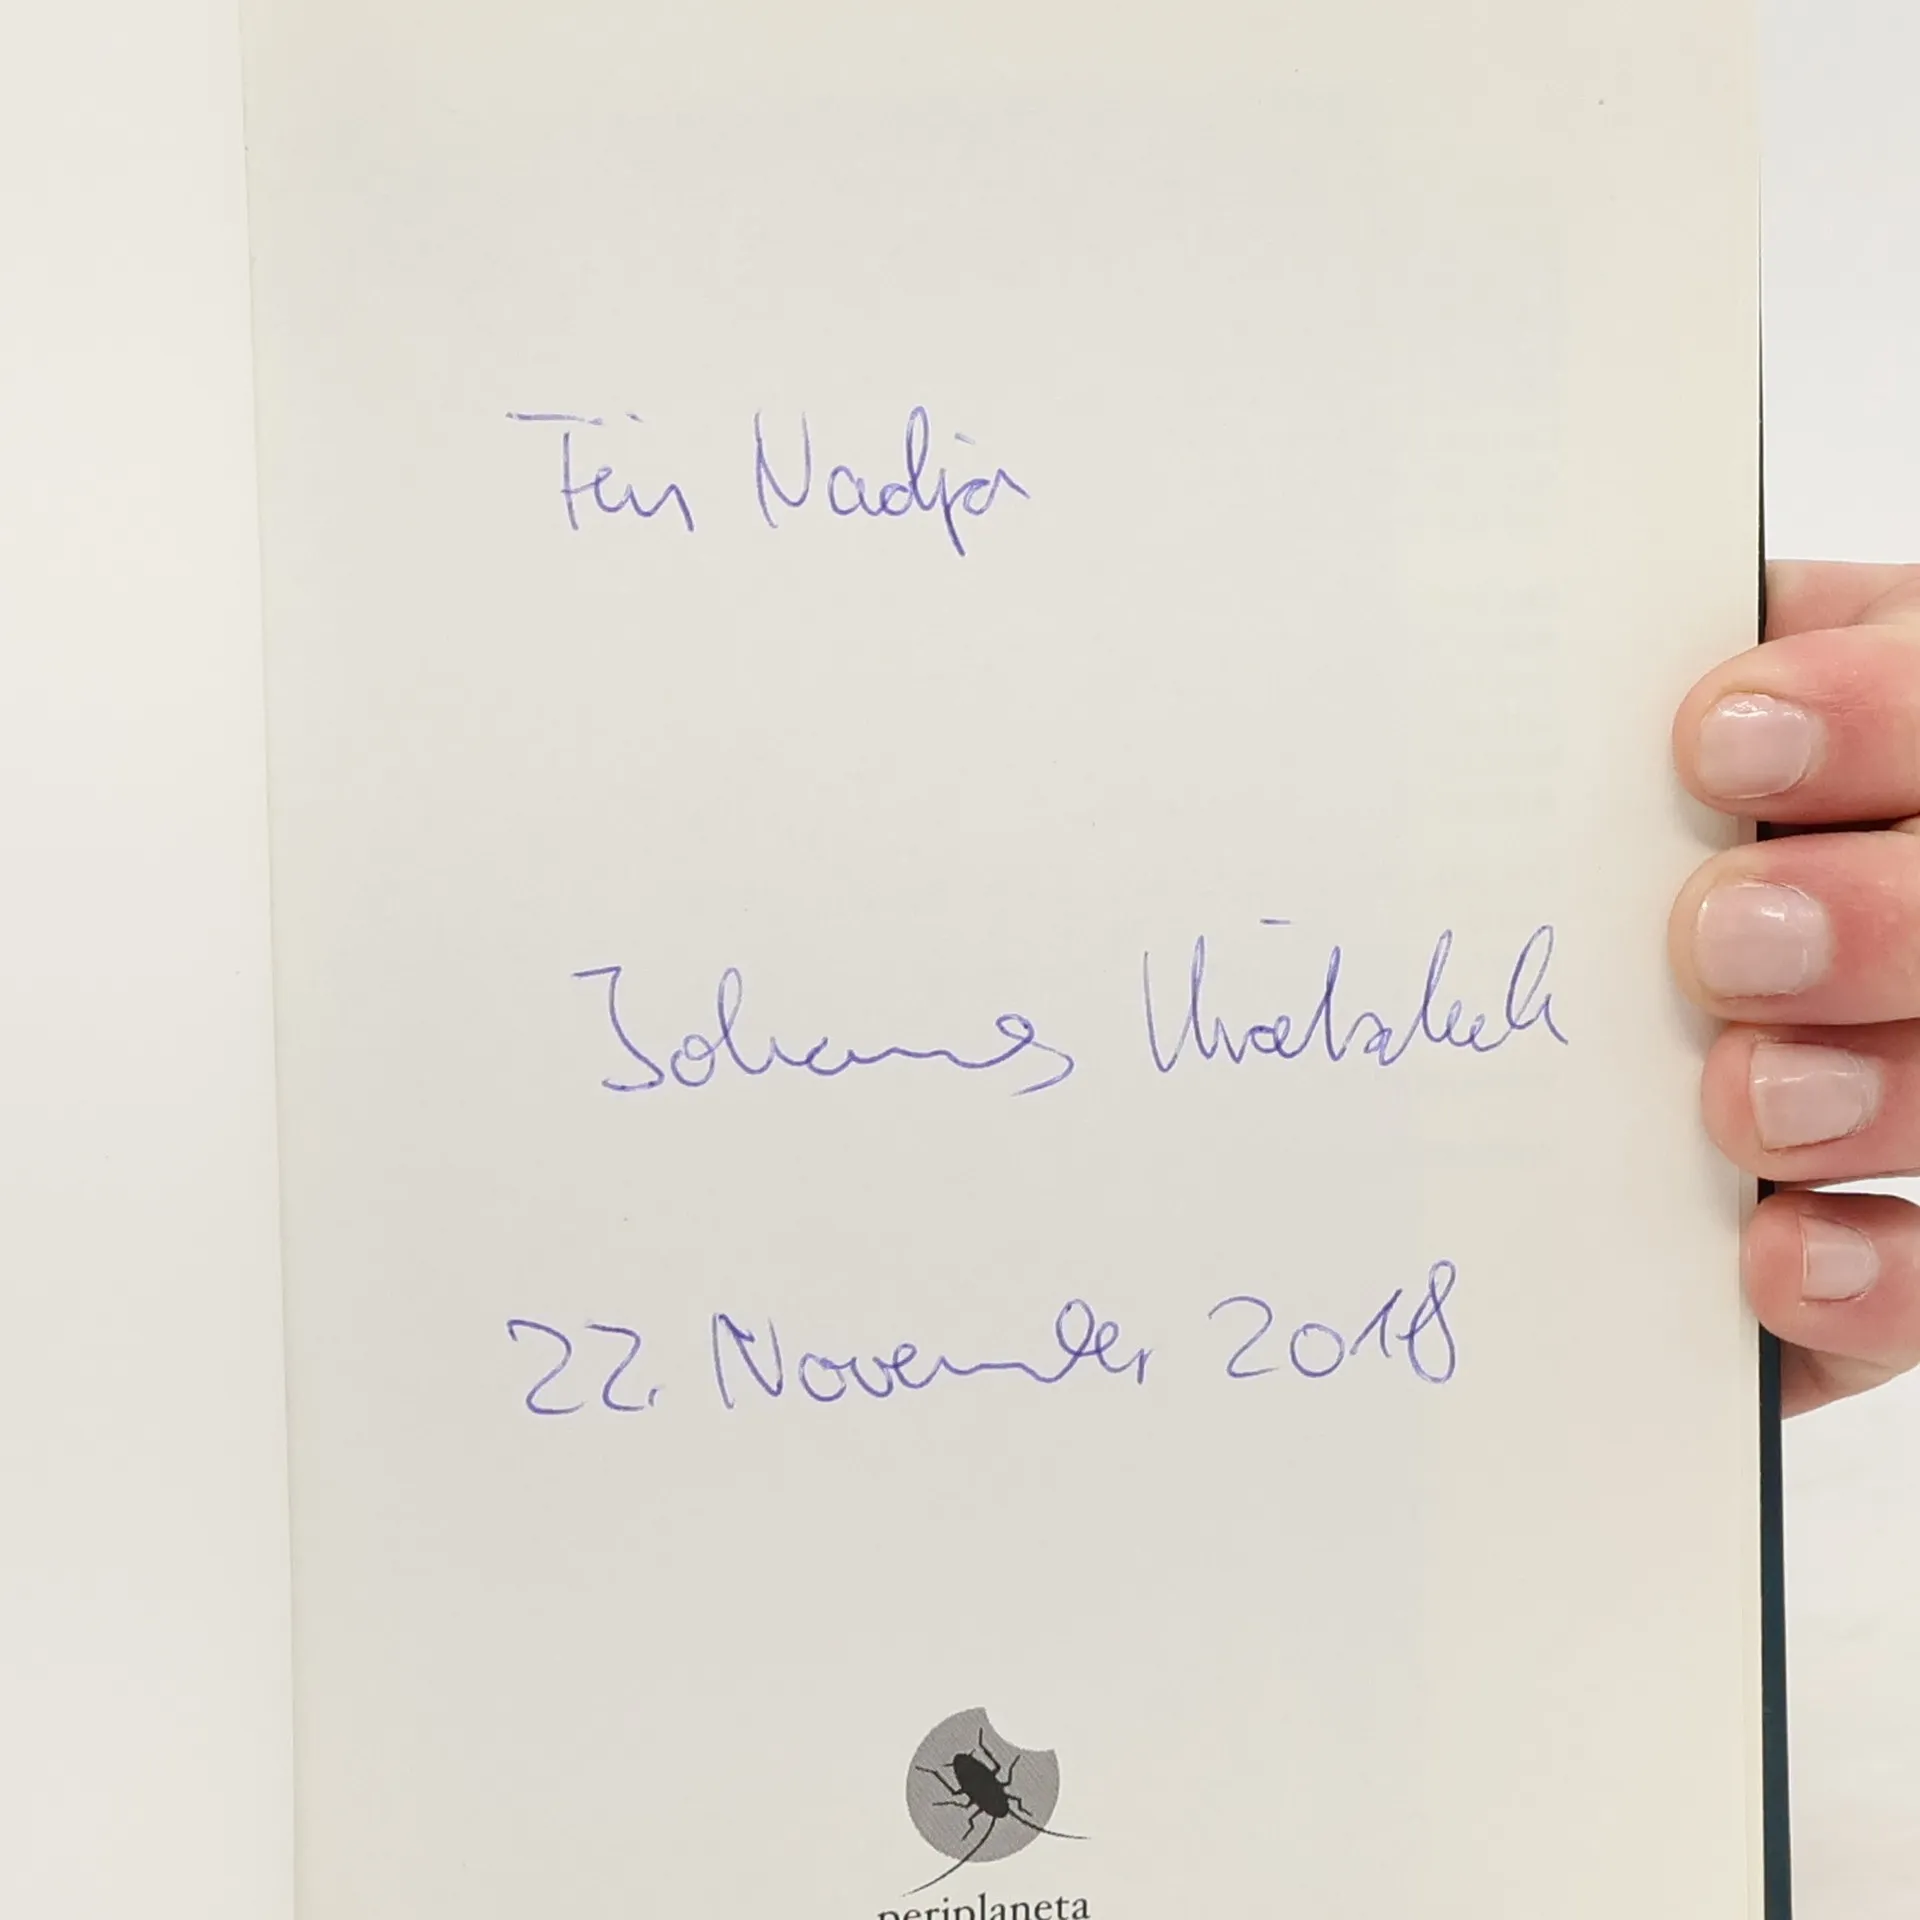 Für Nadja
Johannes Krätschell
22. November 2018
periplaneta